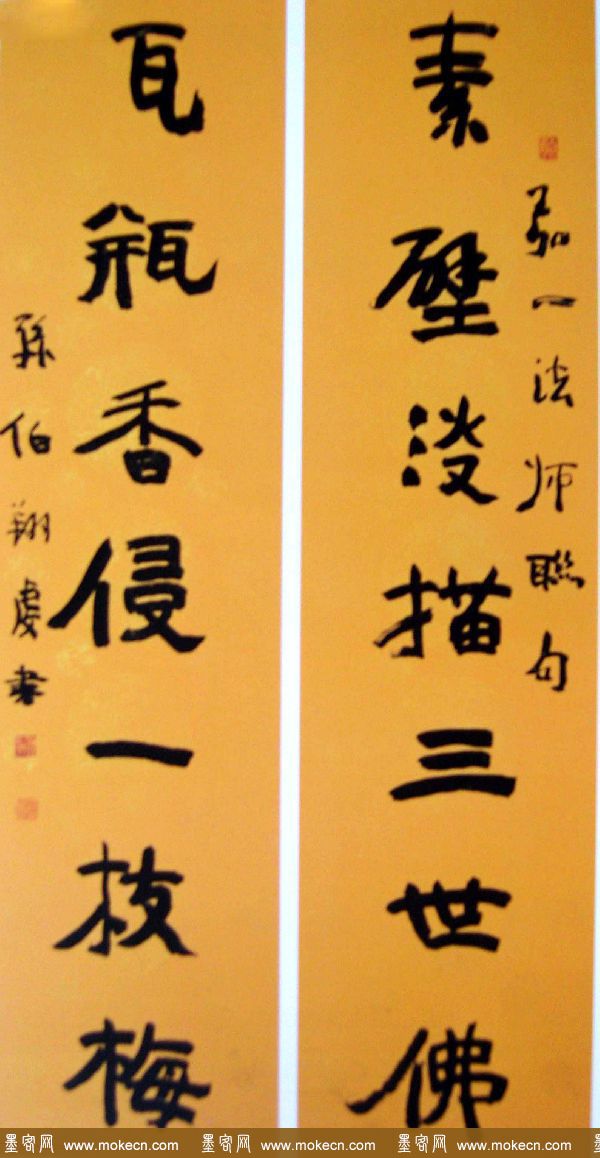 素壁淡描三世佛
弘一法师聯句
瓦瓶香侵一枝梅
孫伯翔虔書
墨客网 www.mokecn.com 墨客网 www.mokecn.com 墨客网 www.mokecn.com